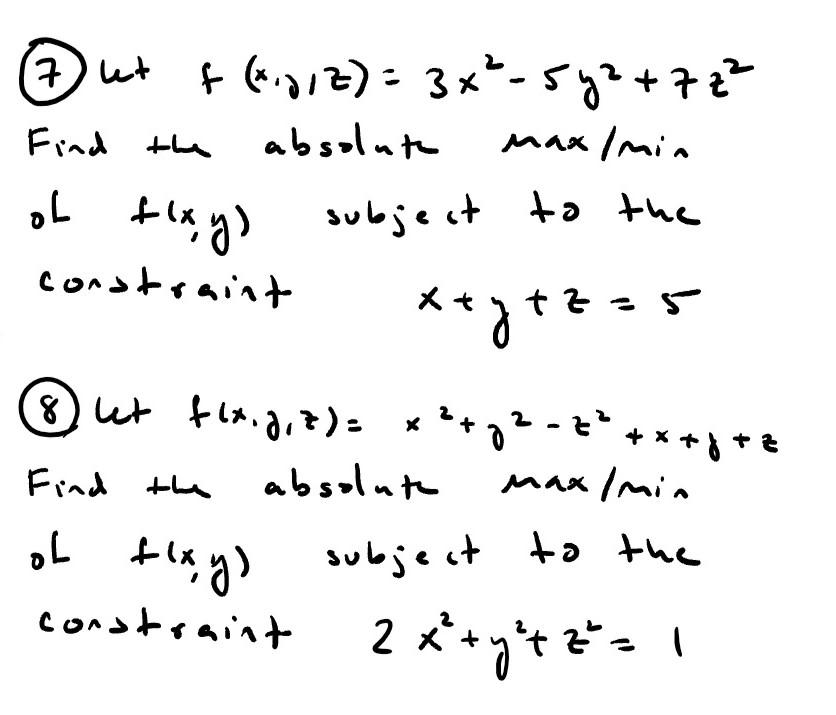 ⑦ Let f(x,y,z) = 3x² - 5y² + 7z²
Find the absolute max/min
of f(x,y) subject to the
constraint x + y + z = 5
⑧ Let f(x,y,z) = x² + y² - z² + x + y + z
Find the absolute max/min
of f(x,y) subject to the
constraint 2x² + y² + z² = 1